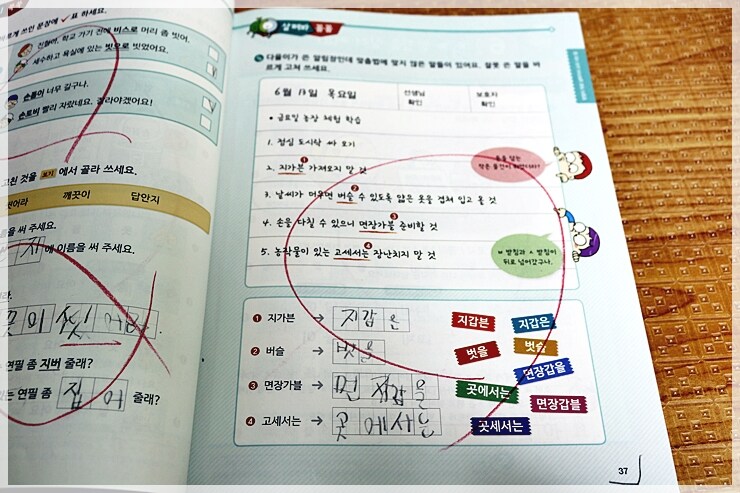 르게 쓰인 문장에 ✓ 표 하세요.
학교 가기 전에 비스로 머리 좀 빗어.
세수하고 욕실에 있는 빗으로 빗었어요.
손톱이 너무 길구나.
손토비 빨리 자랐네요. 잘라야겠어요!
고친 것을 보기 에서 골라 쓰세요.
깨끗이 답안지
을 써 주세요.
에 이름을 써 주세요.
연필 좀 지버 줄래?
있는 연필 좀 집어 줄래?
살펴봐 꼼꼼
다울이가 쓴 알림장인데 맞춤법에 맞지 않은 말들이 있어요. 잘못 쓴 말을 바
르게 고쳐 쓰세요.
6월 13일 목요일
선생님 확인
보호자 확인
• 금요일 농장 체험 학습
1. 점심 도시락 싸 오기
2. 지가븐 가져오지 말 것
3. 날씨가 더우면 버슬 수 있도록 얇은 옷을 겹쳐 입고 올 것
4. 손을 다칠 수 있으니 면장가블 준비할 것
5. 농작물이 있는 고세서는 장난치지 말 것
ㅂ 받침과 ㅅ 받침이
뒤로 넘어갔구나.
❶ 지가븐 → 지갑은
❷ 버슬 → 벗을
❸ 면장가블 → 면장갑을
❹ 고세서는 → 곳에서는
지갑븐 지갑은
벗을 벗슬
면장갑을
곳에서는 면장갑블
곳세서는
37